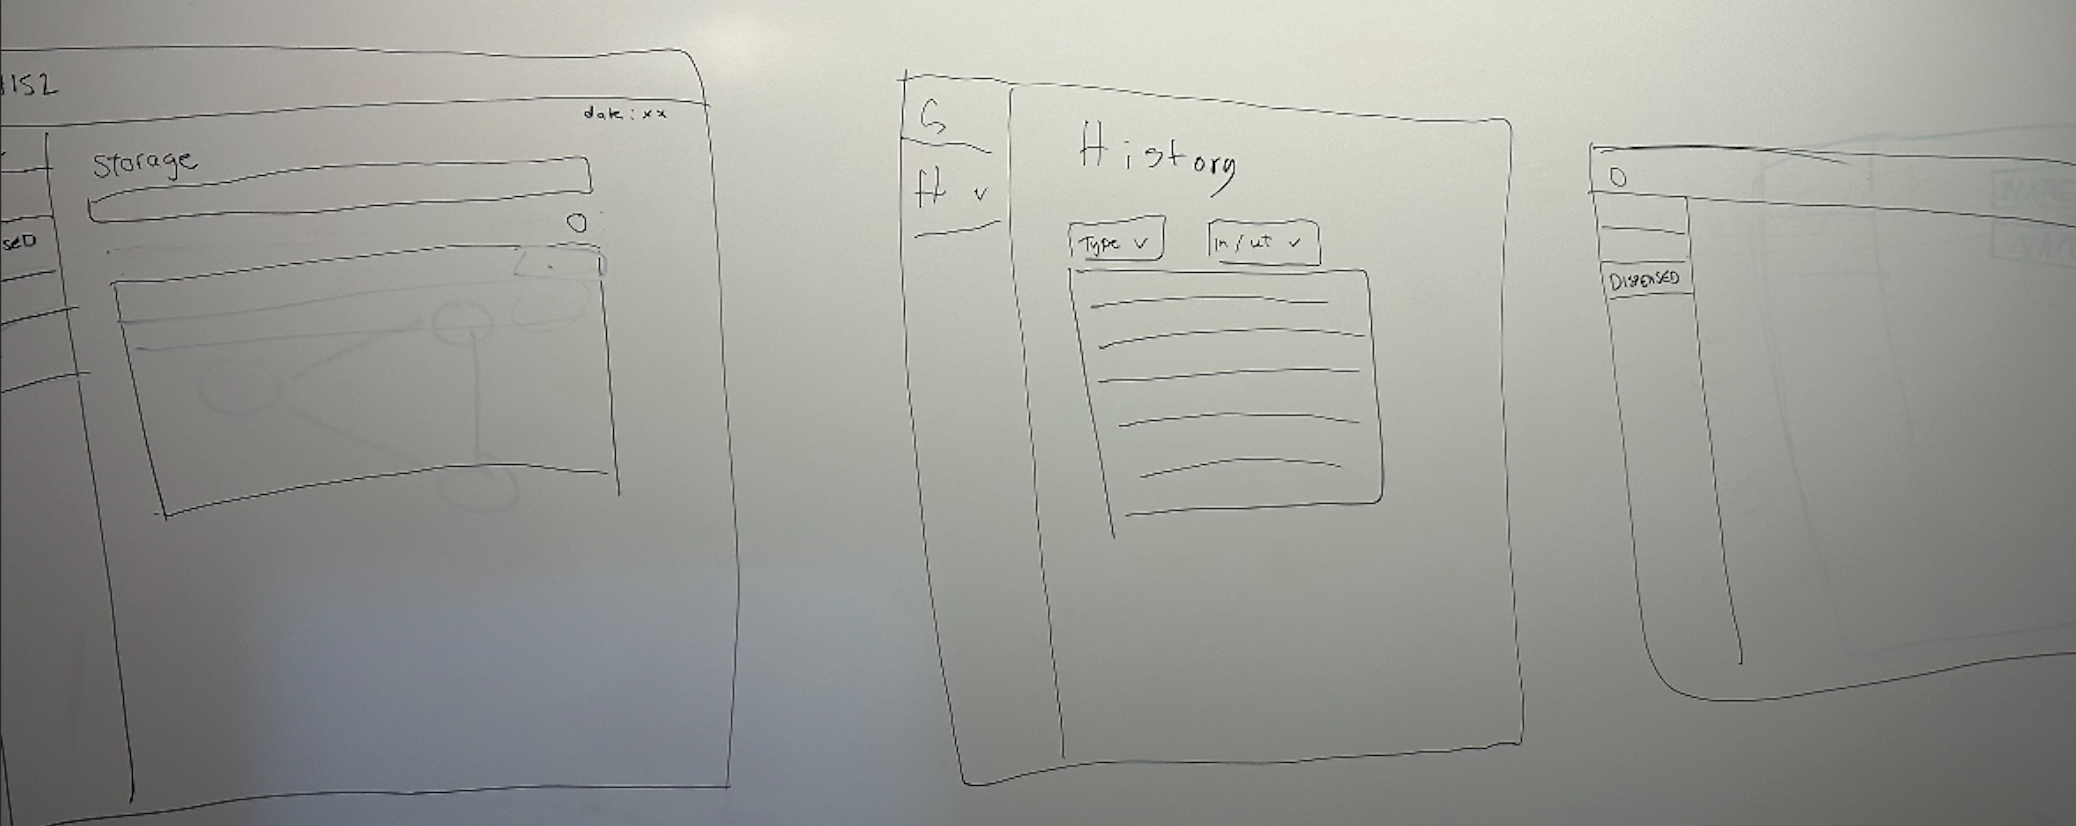 HIS2
date: xx
Storage
SED
G
H v
History
Type v
In/ut v
O
DISPENSED